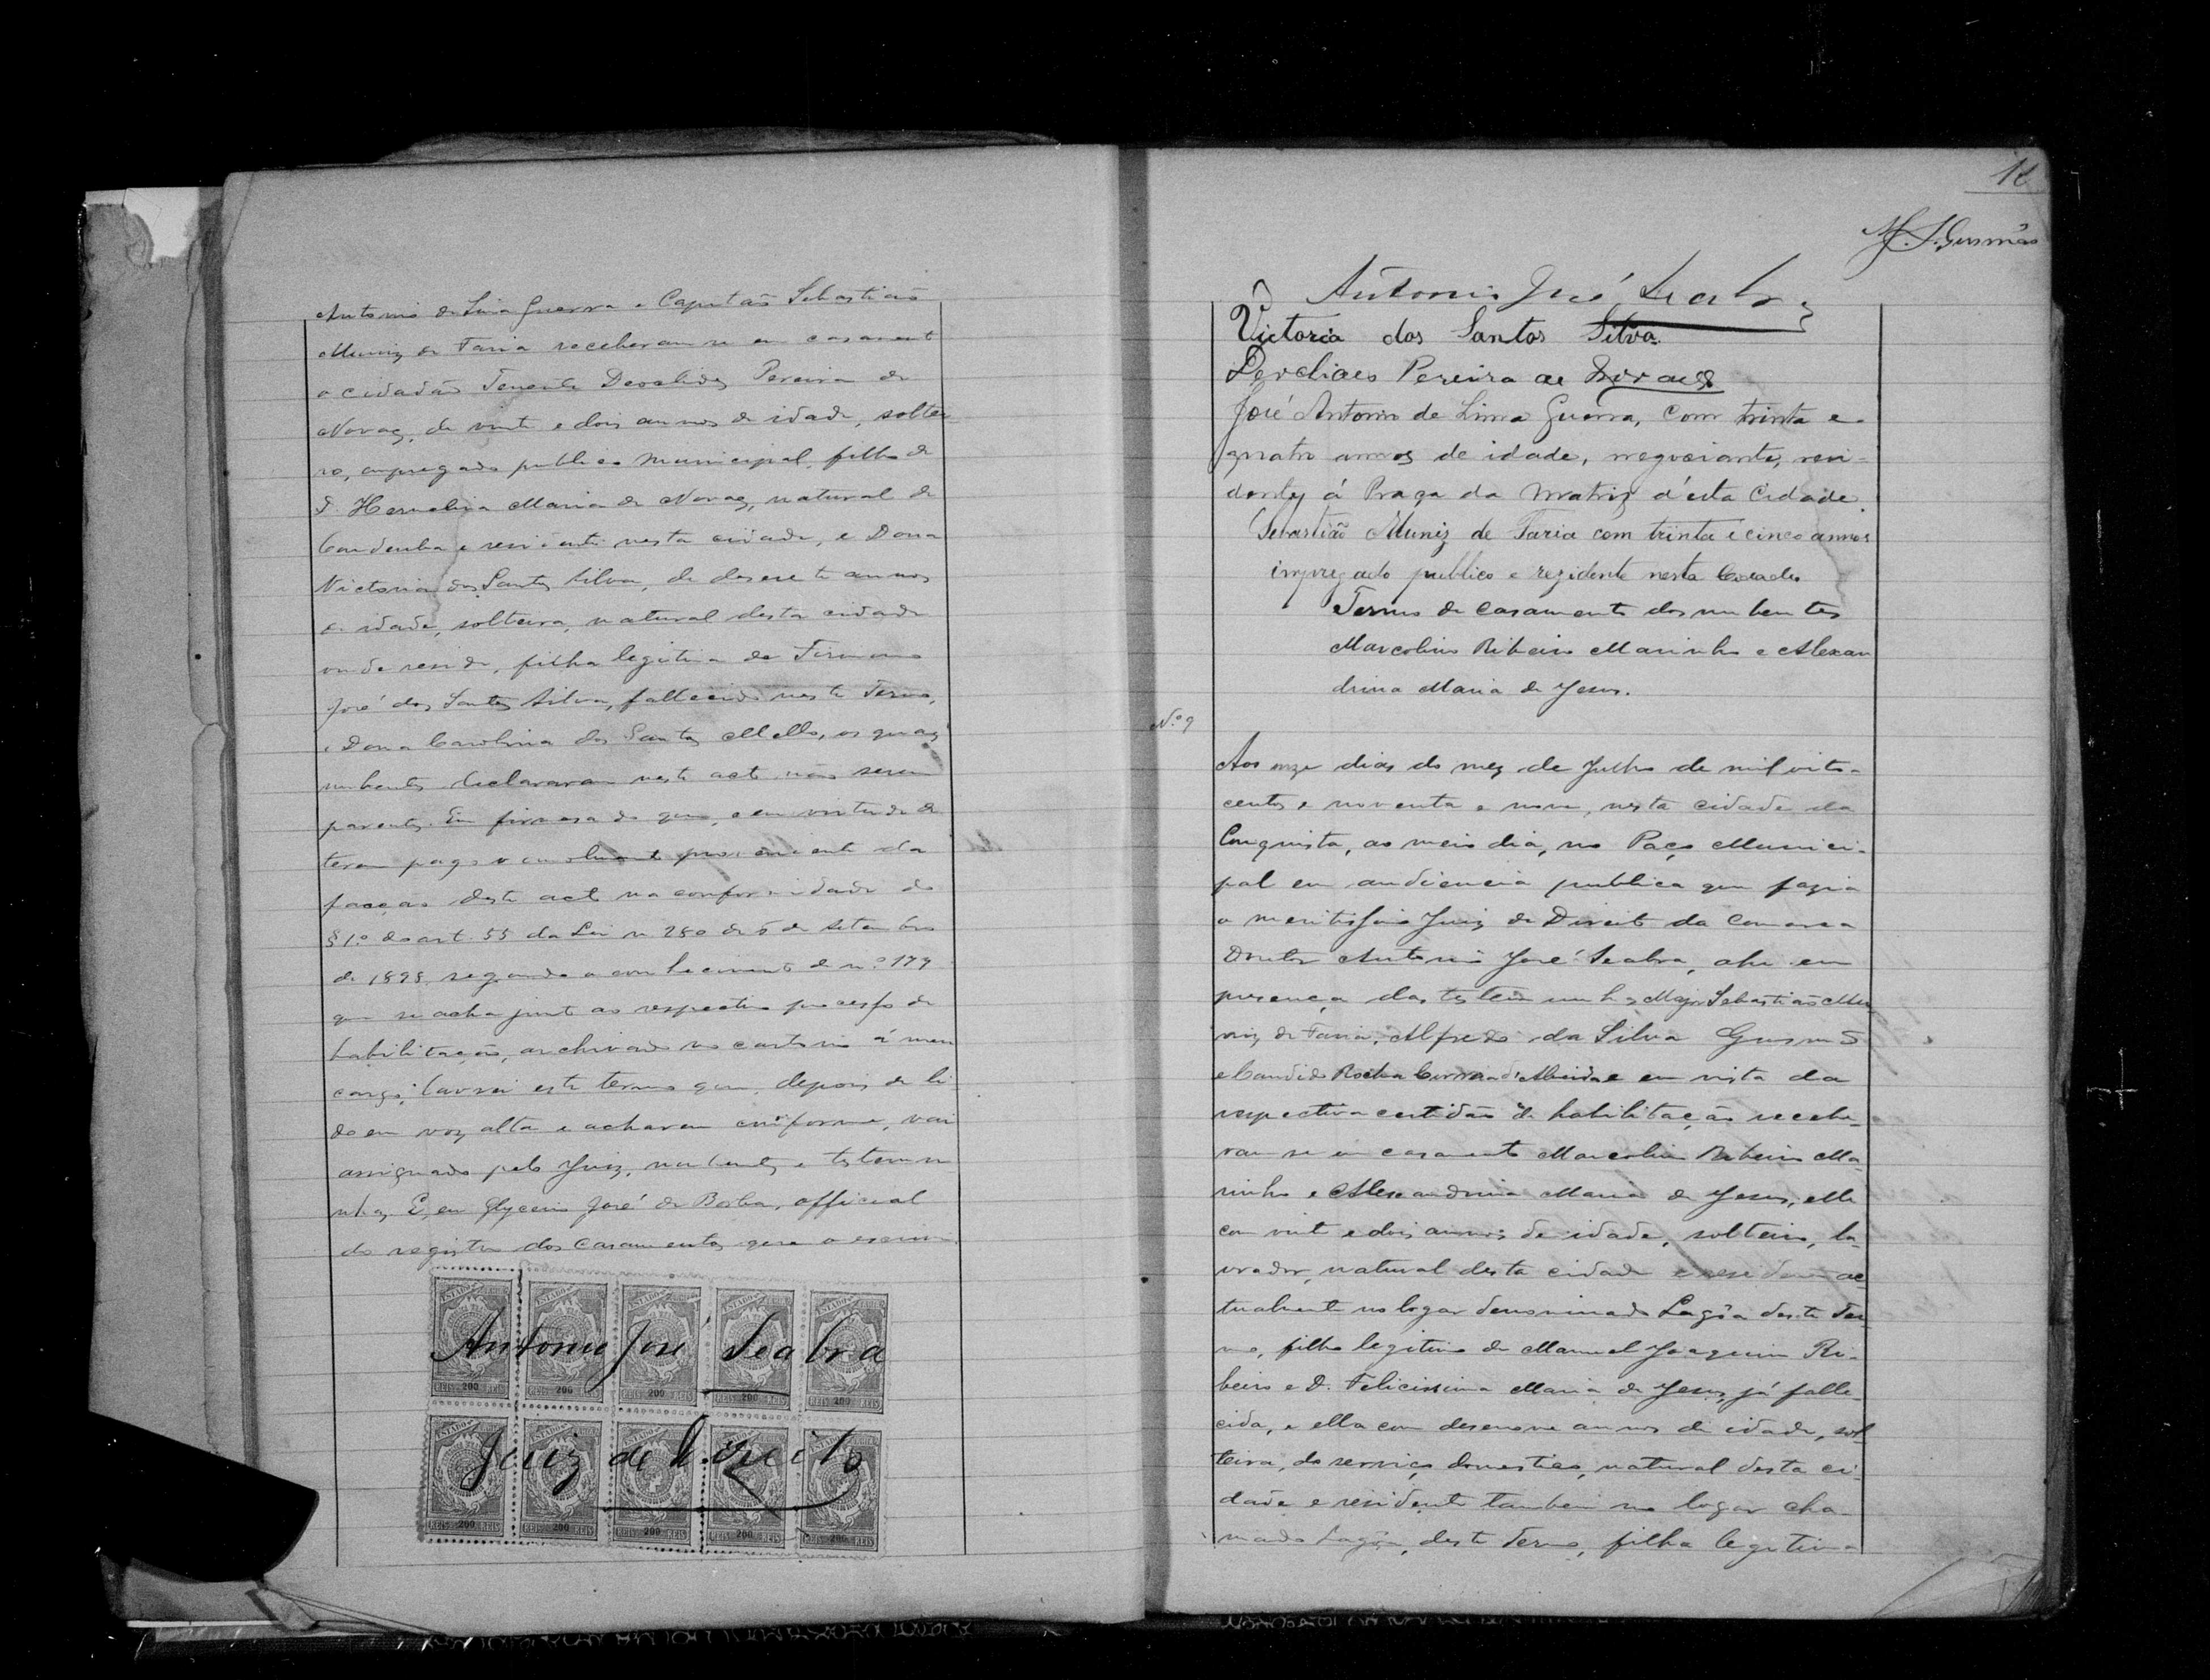 Antonio de Lima Guerra e Capitão Sebastião
Muniz de Faria receberam-se em casamento
o cidadão Tenente Deoclides Pereira de
Novaes, de vinte e dois annos de idade, soltei-
ro, empregado publico municipal, filho de
D. Hermelina Maria de Novaes, natural de
Condeuba e residente nesta cidade, e Dona
Victoria dos Santos Silva, de desesete annos
de idade, solteira, natural desta cidade
onde reside, filha legitima de Firmino
José dos Santos Silva, fallecido neste Termo,
e Dona Carolina dos Santos Mello, os quaes
nubentes declararam neste acto não serem
parentes. Em firmesa do que, e em virtude de
terem pago o emolumento proveniente da
factura deste acto na conformidade do
§ 1º do art. 55 da Lei n 280 de 5 de Setembro
de 1898, segundo o conhecimento de nº 179
que se acha junto ao respectivo processo de
habilitação, archivado no cartorio á meu
cargo; lavrei este termo que, depois de li-
do em voz alta e acharem conforme, vai
assignado pelo Juiz, nubentes e testemu-
nhas. E, eu Glycerio José de Borba, official
do registro dos casamentos que o escrevi
Antonio José Seabra
Juiz de Direito
ESTADO
REIS 200 REIS
12
M. S. Gusmão
Antonio José Seabra
Victoria dos Santos Silva.
Deoclides Pereira de Novaes
José Antonio de Lima Guerra, com trinta e
quatro annos de idade, negociante, resi-
dente á Praça da Matriz d'esta Cidade.
Sebastião Muniz de Faria com trinta e cinco annos
impregado publico e rezidente nesta Cidade
Termo de casamento dos nubentes
Marcolino Ribeiro Marinho e Alexan
drina Maria de Jesus.
Nº 9
Aos onze dias do mez de Julho de mil oito-
centos e noventa e nove, nesta cidade da
Conquista, ao meio dia, no Paço Munici-
pal em audiencia publica que fazia
o meritissimo Juiz de Direito da Comarca
Doutor Antonio José Seabra, ahi em
presença das testemunhas Major Sebastião Mu
niz de Faria, Alfredo da Silva Gusmão
e Candido Rocha d'Almeida e em vista da
respectiva certidão de habilitação recebe-
ram-se em casamento Marcolino Ribeiro Ma-
rinho e Alexandrina Maria de Jesus, elle
com vinte e dois annos de idade, solteiro, la-
vrador, natural desta cidade e residente ac
tualmente no logar denominado Lagôa deste Ter
mo, filho legitimo de Manuel Joaquim Ri-
beiro e D. Felicissima Maria de Jesus, já falle-
cida, e ella com desenove annos de idade, sol-
teira, de serviço domestico, natural desta ci-
dade e residente tambem no logar cha-
mado Lagôa, deste Termo, filha legitima